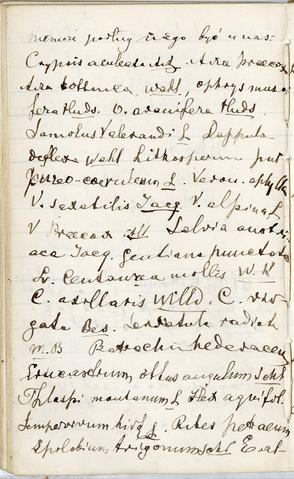 być u nas:
Crypsis aculeata Aira praecox
Aira Wahl, ophrys musci
fera Huds. O. aranifera Huds.
Samolus Valerandi L Lappula
deflexa Wahl Lithosperm pur
pureo-coeruleum L. Veron. aphylla
V. saxatilis Jacq V. alpina L
V Praecox All Salvia austri
aca Jacq. Gentiana punctata
L. Centaurea mollis W. K
C. axillaris Willd. C. var
gata Bes. Serratula radiata
M.B hederaceu
Erucastrum obtusangulum
Thlaspi montanum L Ilex aquifol.
Sempervivum hirt L. Ribes petraeum
Epilobium trigonum